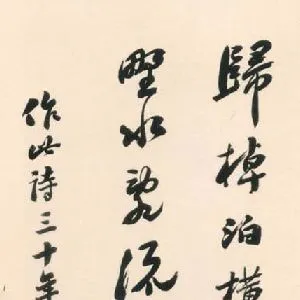 歸棹泊橫
野水亂流
作此詩三十年